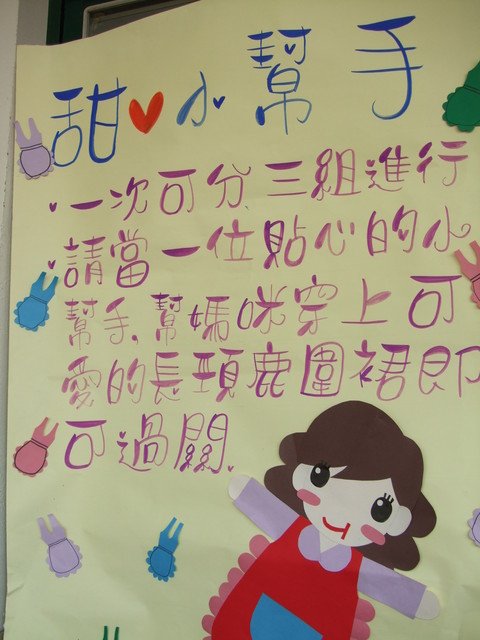 甜♥小♥幫手
♥一次可分三組進行
♥請當一位貼心的小
幫手,幫媽咪穿上可
愛的長頸鹿圍裙即
可過關.